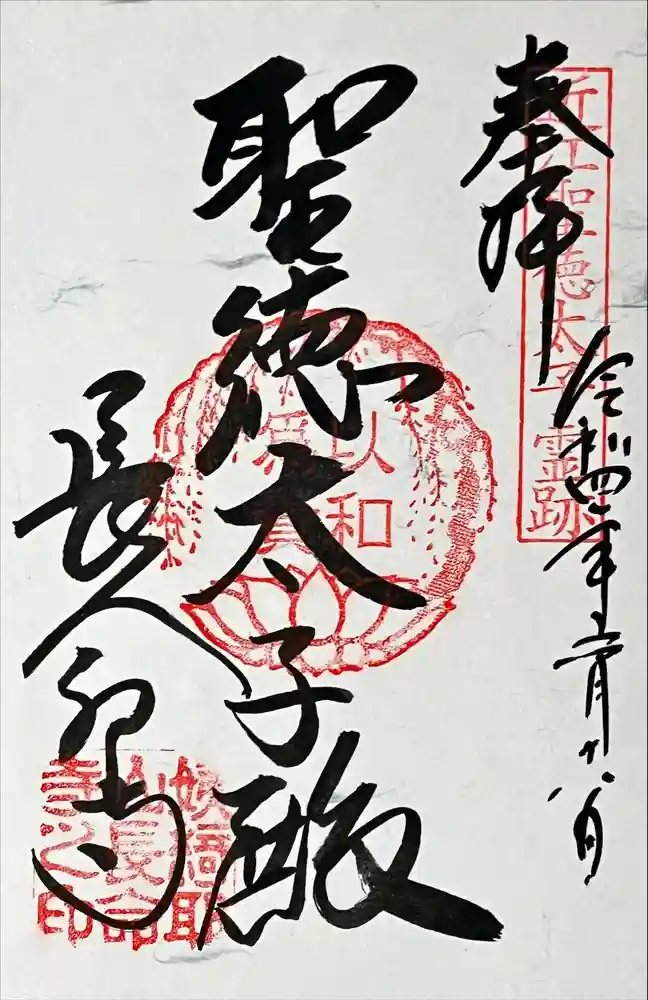 奉拝
近江聖徳太子霊跡
令和四年五月十八日
聖徳太子殿
以和
為貴
長命寺
姨綺耶
山長命
寺之印